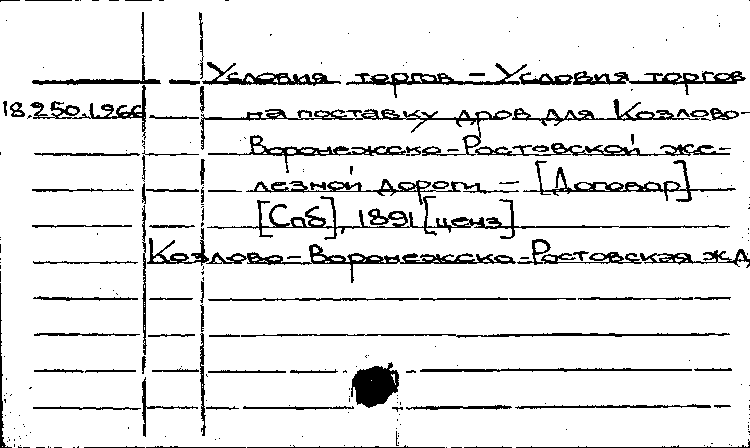 Условия торгов – Условия торгов
18.250.1.966 на поставку дров для Козлово-
Воронежско-Ростовской же-
лезной дороги – [Договор]
[Спб], 1891 [ценз]
Козлово-Воронежско-Ростовская жд